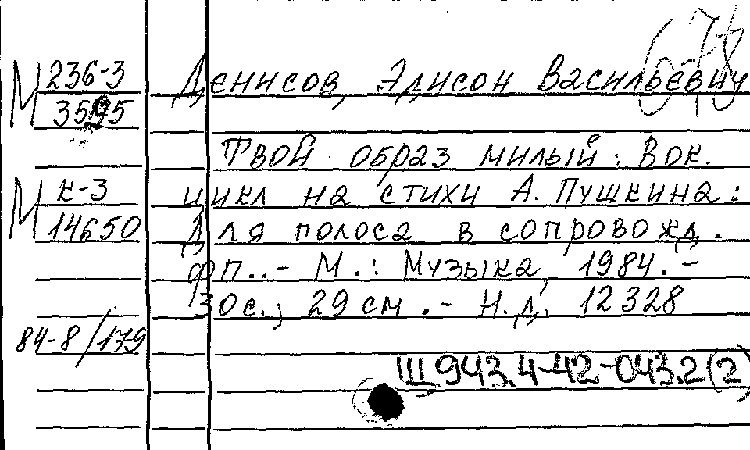 М 236-3
3595
Денисов, Эдисон Васильевич
Твой образ милый: Вок.
М К-3
14650
цикл на стихи А. Пушкина:
Для голоса в сопровожд.
фп..- М.: Музыка, 1984.-
30с.; 29см.- Н.д. 12328
84-8/179
Щ943.4-42-043.2(2)